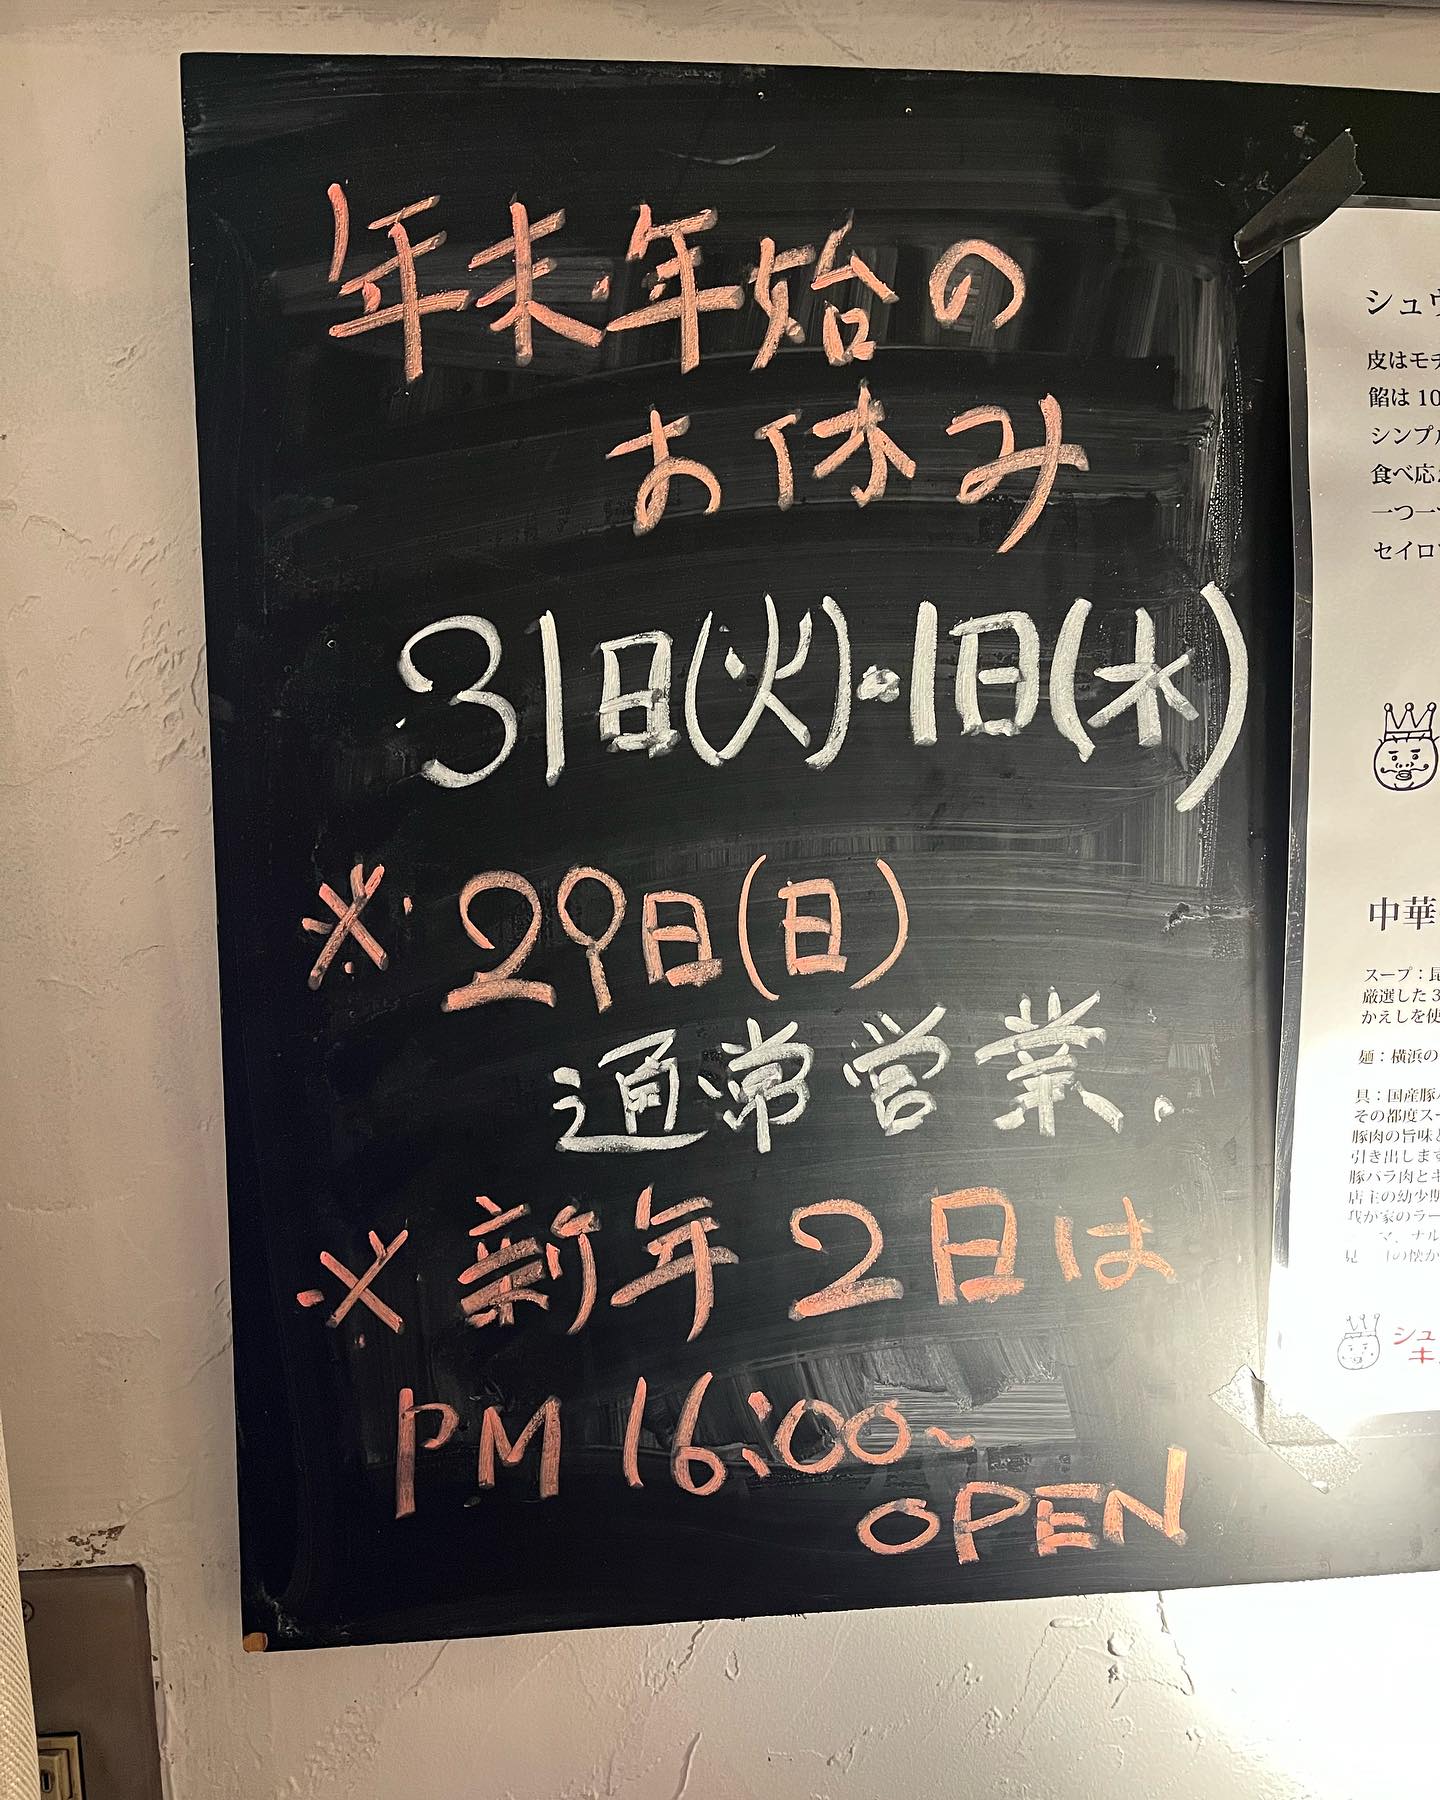 年末年始の
お休み
31日(火)・1日(水)
※ 29日(日)
通常営業。
※ 新年 2日は
PM 16:00~
OPEN
シュウ
皮はモチ
餡は 10
シンプル
食べ応
一つ一
セイロ
中華
スープ：昆
厳選した 3
かえしを使
麺：横浜の
具：国産豚
その都度スー
豚肉の旨味と
引き出します
豚バラ肉とキ
店主の幼少期
我が家のラー
シュ
キ